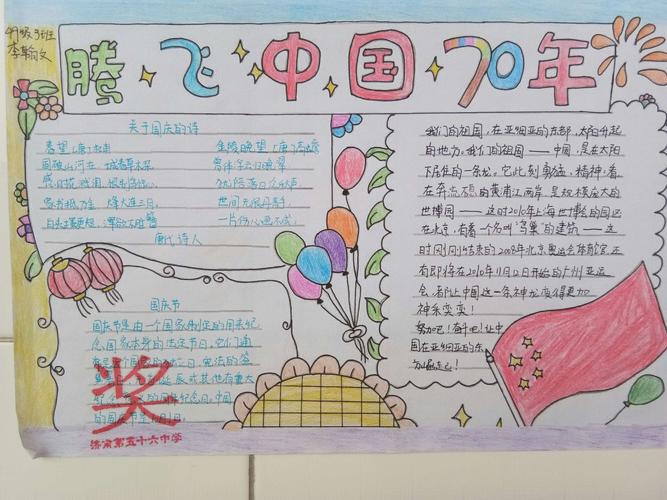 级3班
李翰文
腾飞中国70年
关于国庆的诗
春望 唐 杜甫
国破山河在,城春草木深
感时花溅泪,恨别鸟惊心。
烽火连三月,
白头搔更短,浑欲不胜簪
金陵晚望 唐 高蟾
曾伴浮云归晚翠
犹陪落日泛秋声
世间无限丹青手
一片伤心画不成
唐代诗人
国庆节
国庆节是由一个国家制定的用来纪
念国家本身的法定节日,它们通
常是这个国家的
或其他有重大
纪念日,中国
的国庆节是10月1日。
奖
济南第五十六中学
我们的祖国,在亚细亚的东部,太阳升起
的地方。我们的祖国——中国,是在太阳
下居住的一条龙。它此刻勇猛,精神,看,
在奔流不息的黄浦江两岸是规模庞大的
世博园——这时2010年上海世博会的园区
在北京,有着一个名叫"鸟巢"的建筑——这
时刚刚结束的2008年北京奥运会体育馆,还
有即将在2010年11月12日开始的广州亚运
会,都让中国这一条神龙变得更加
神采奕奕!
努加吧!奋斗吧!让中
国在亚细亚的东
方崛起!